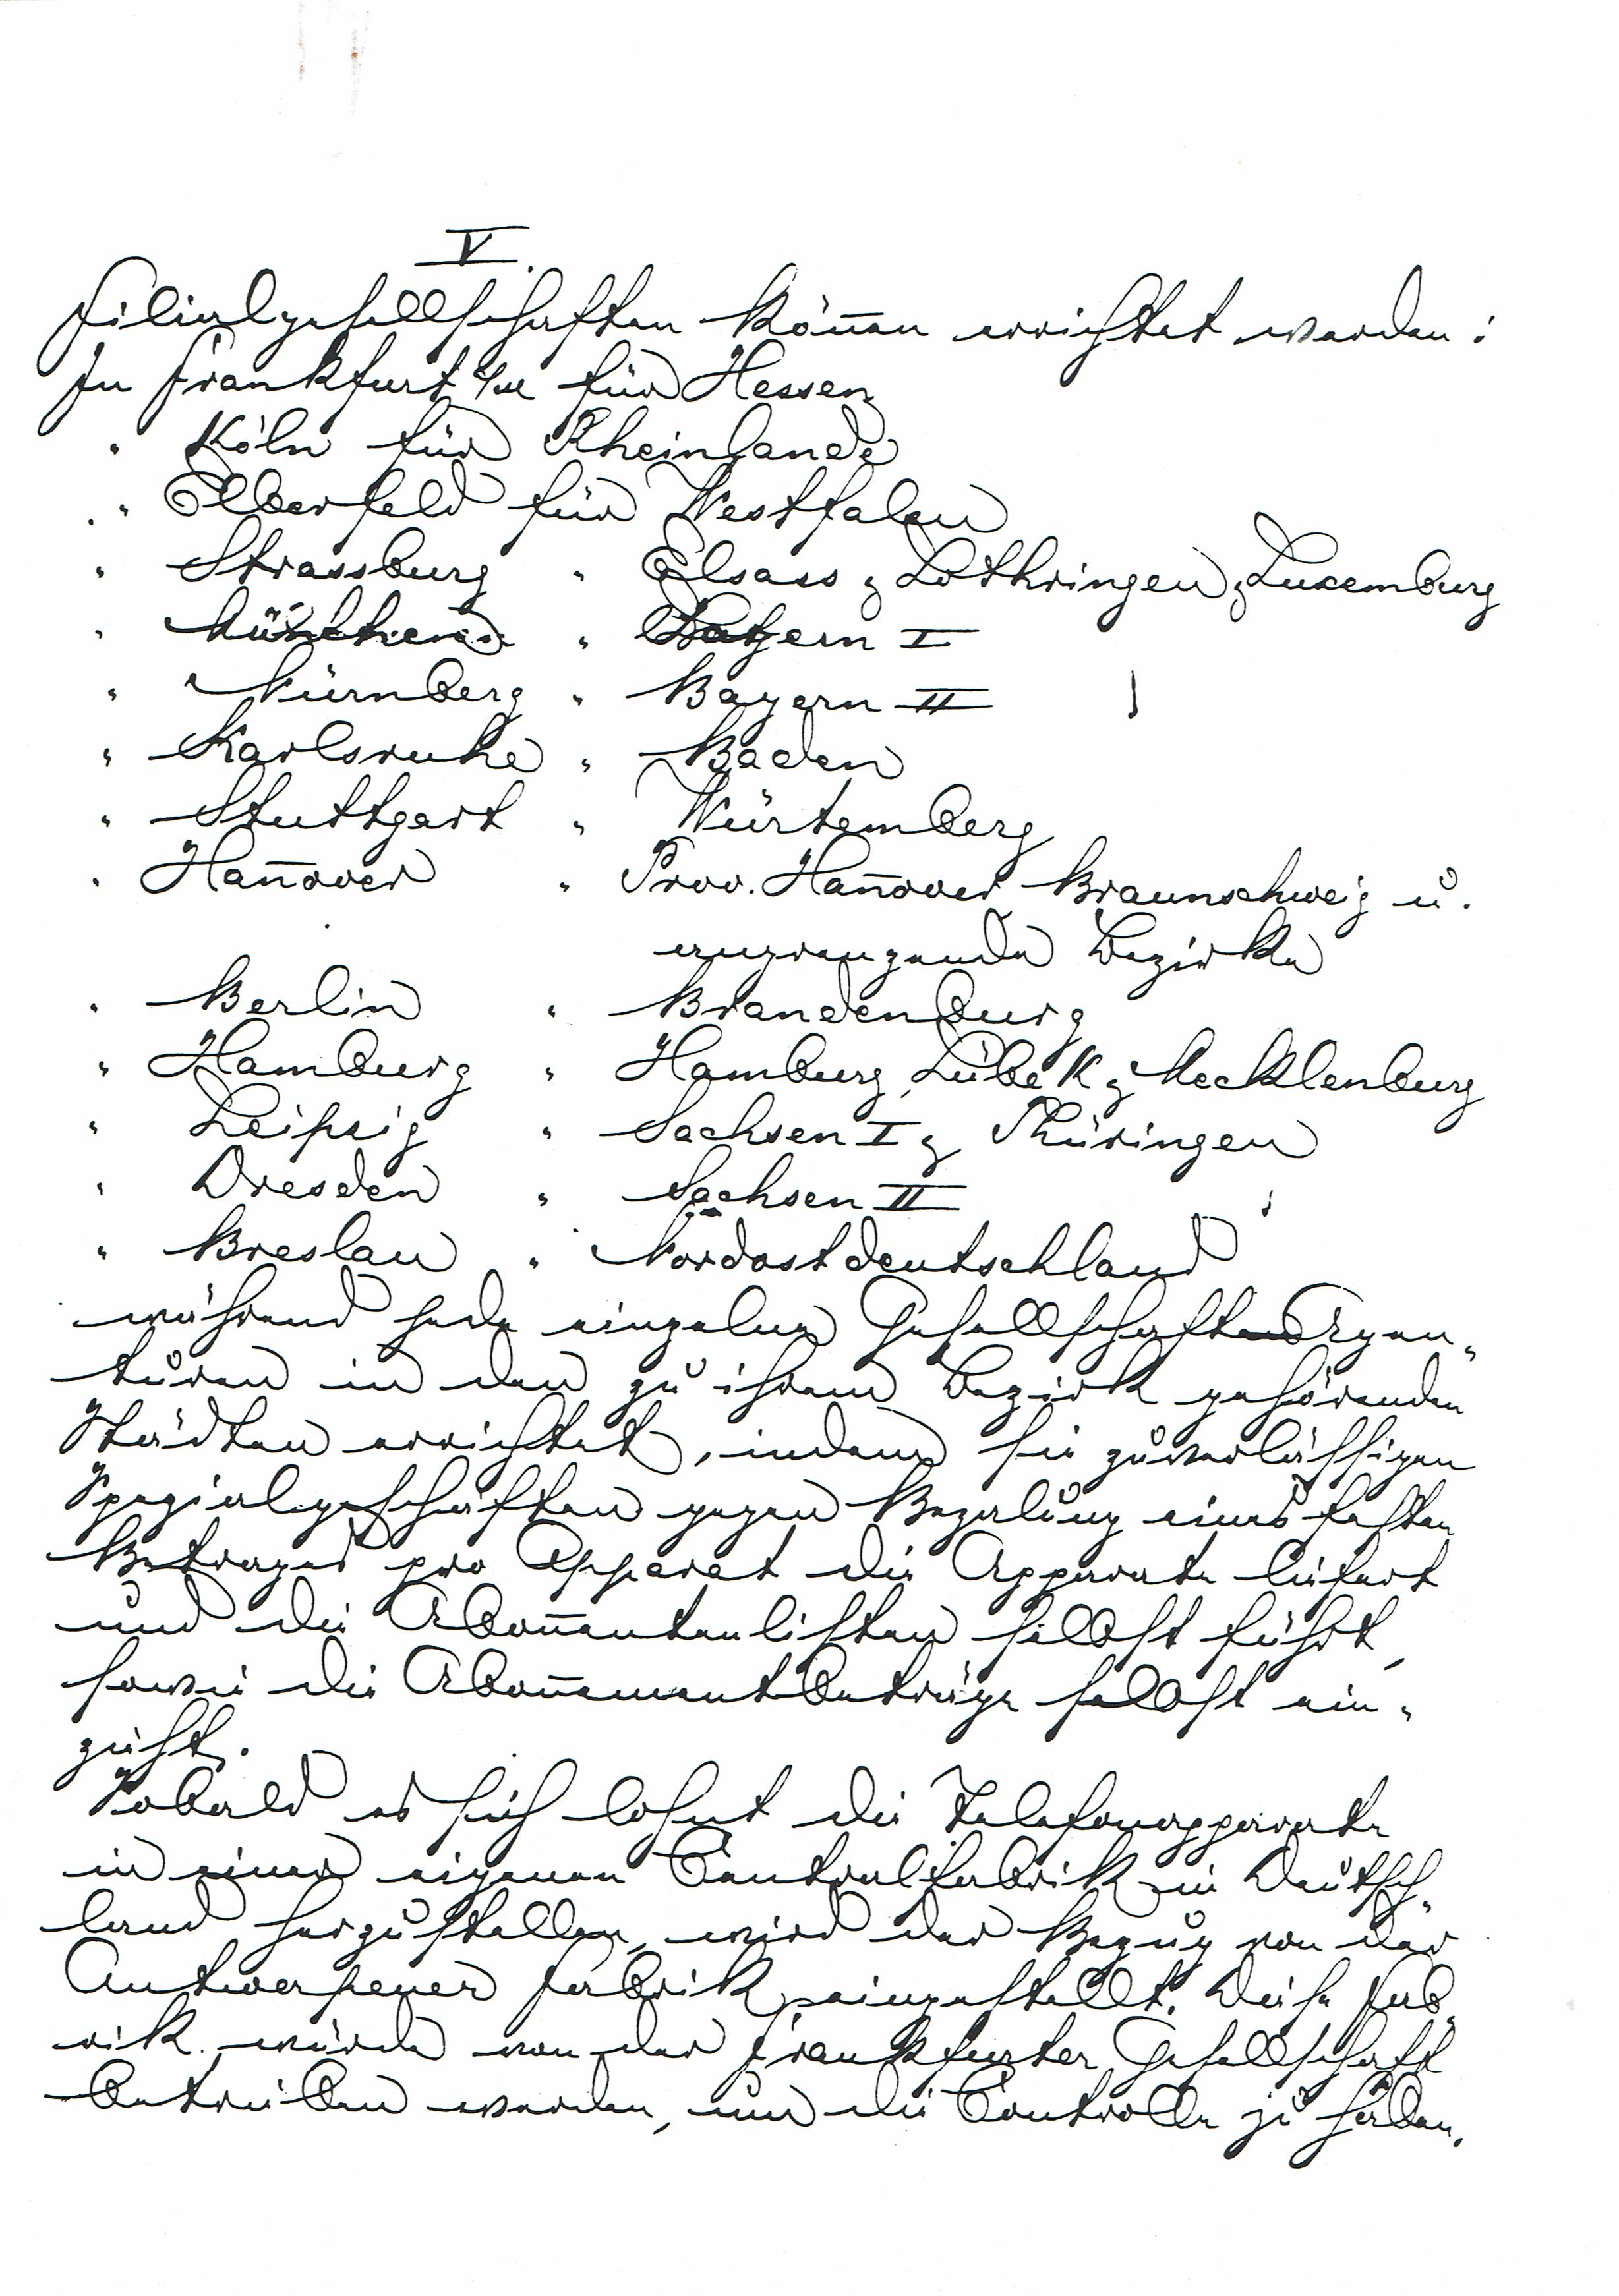 V.
Filialgesellschaften können errichtet werden:
In Frankfurt a/M für Hessen
" Köln für Rheinlande
" Elberfeld für Westfalen
" Strassburg " Elsass & Lothringen & Luxemburg
" München " Bayern I
" Nürnberg " Bayern II
" Karlsruhe " Baden
" Stuttgart " Würtemberg
" Hannover " Prov. Hannover Braunschweig u.
angrenzende Bezirke
" Berlin " Brandenburg
" Hamburg " Hamburg, Lübek & Mecklenburg
" Leipzig " Sachsen I & Thüringen
" Dresden " Sachsen II
" Breslau " Nordostdeutschland
während jede einzelne Gesellschaft Agen-
turen in den zu ihrem Bezirk gehörenden
Städten errichtet, indem sie zuverlässigen
Spezialgeschäften gegen Bezalung eines festen
Betrages pro Apparat die Apparate liefert
und die Abonnentenlisten selbst führt,
sowie die Abonnementbeträge selbst ein-
zieht.
Sobald es sich lohnt die Telefonapparate
in einer eigenen Centralfabrik in Deutsch-
land herzustellen, wird der Bezug von der
Antwerpener Fabrik eingestellt. Diese Fab-
rik würde von der Frankfurter Gesellschaft
betrieben werden, um die Controlle zu haben.